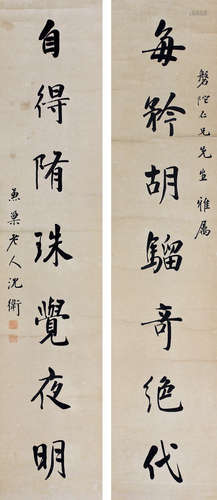 每矜胡騮奇絕代
磐陀仁兄先生雅屬
自得隋珠覺夜明
兼巢老人沈衛